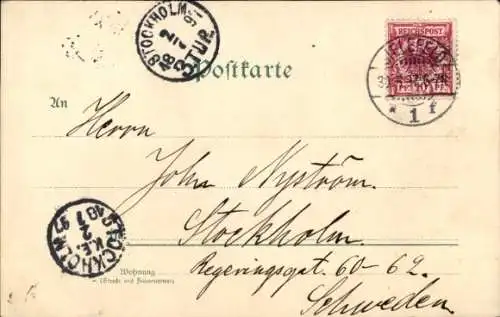 STOCKHOLM
3 TUR
REICHSPOST
Postkarte
BIELEFELD
* 1 f
An
Herrn
John Nyström.
Stockholm.
Regeringsgat. 60-62.
Schweden
STOCKHOLM
K.E.
Wohnung
(Straße und Hausnummer)